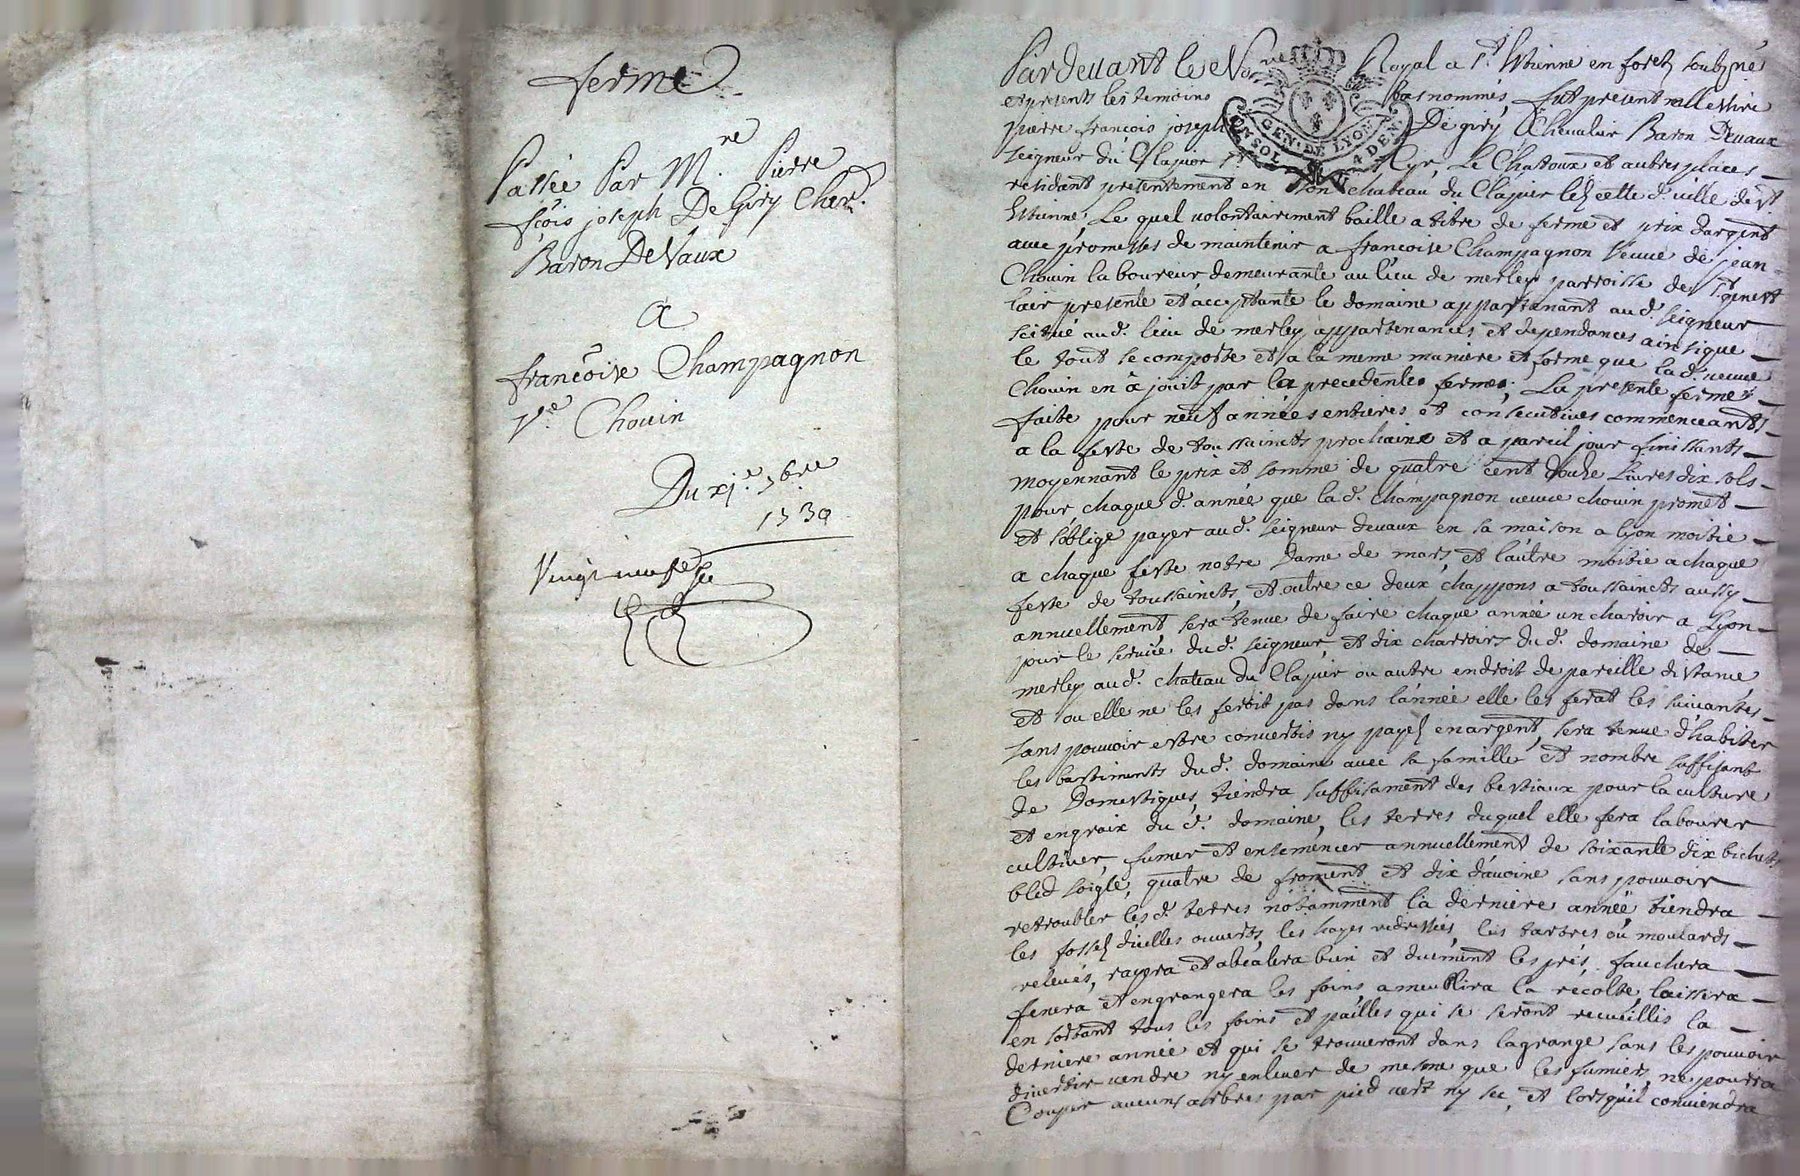 ferme
Passée Par M.re Pierre
fçois joseph De Giry Cher.
Baron De Vaux
A
francoise Champagnon
V.e Chouin
Du xj.e 9bre
1730
Vingt neuf
Pardevant le No.re Royal a St. Etienne en forez soubsiné
et presents les temoins bas nommés, fut present messire
pierre françois joseph De giry Chevalier Baron Devaux
seigneur du Clapier St. Cyr, Le Chattoux et autres places
residant presentement en son chateau du Clapier lez cette d. ville de St
Etienne, Le quel volontairement baille a titre de ferme et prix dargent
avec promesses de maintenir a francoise Champagnon veuve de jean
Chouin laboureur demeurante au lieu de merley parroisse de St. genest
lair presente et acceptante le domaine appartenant aud. seigneur
scitué aud. lieu de merley appartenances et dependances ainsi que
le tout se comporte et a la meme maniere et forme que la d. veuve
Chouin en a jouit par la precedentes fermes; La presente ferme
faite pour neuf années entieres et consecutives commenceants
a la feste de toussaincts prochaine et a pareil jour finissants
moyennant le prix et somme de quatre cent douze Livres dix sols
pour chaque d. année que la d. Champagnon veuve chouin promet
et s'oblige payer aud. seigneur devaux en sa maison a Lyon moitié
a chaque feste notre Dame de mars et l'autre moitié a chaque
feste de toussaincts, et outre ce deux chappons a toussaincts aussy
annuellement, sera tenue de faire chaque année un charoir a Lyon
pour le service du d. seigneur, et dix charroirs du d. domaine de
merley aud. chateau du Clapier ou autre endroit de pareille distance
et ou elle ne les feroit pas dans l'année elle les ferat les suivantes
sans pouvoir estre convertis ny payez en argent, sera tenue d'habiter
les bastiments du d. domaine avec sa famille et nombre suffisant
de Domestiques, tiendra suffisament des bestiaux pour la culture
et engraix du d. domaine, les terres duquel elle fera labourer
cultiver, fumer et ensemencer annuellement de soixante dix bichets
bled soigle, quatre de froment et dix d'avoine sans pouvoir
retroubler les d. terres notamment la derniere année, tiendra
les fossez d'icelles ouverts, les hayes redressées, les tartres ou moulards
relevés, rayera et abealera bien et duement les prés, fauchera
fenera et engrangera les foins, ameublira la recolte, laissera
en sortant tous les foins et pailles qui se seront recueillis la
derniere année et qui se trouveront dans la grange sans les pouvoir
divertir vendre ny enlever de mesme que les fumiers, ne pourra
Couper aucuns arbres par pied vert ny sec, et lorsqu'il conviendra
GEN. DE LYON
UN SOL 4 DEN.